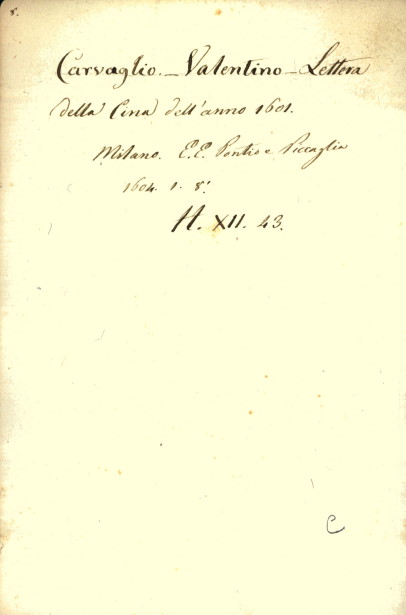 8.
Carvaglio. _ Valentino _ Lettera
della Cina dell'anno 1601.
Milano. E.E. Pontio e Piccaglia
1604. 1. 8.°
H. XII. 43.
C